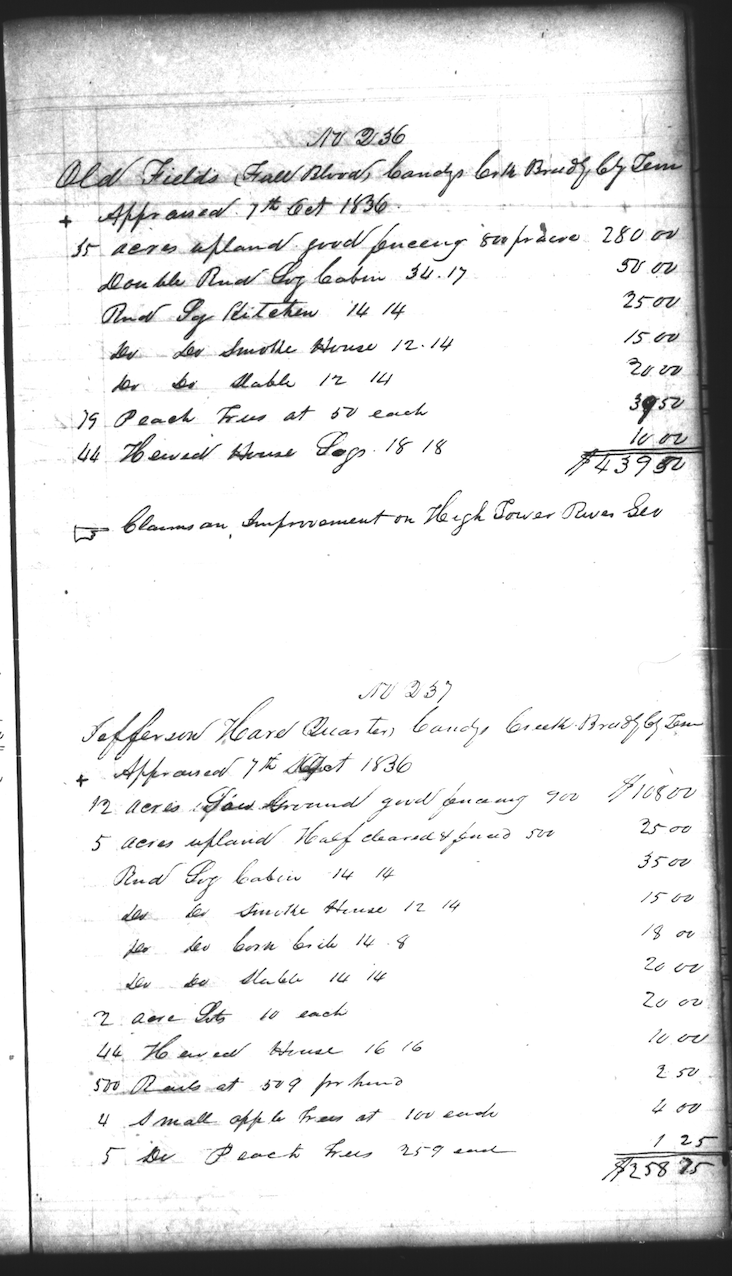 No 236
Old Fields (Full Blood) Candys Crk Bradly Cty Tenn
+ Appraised 7th Oct 1836.
35 acres upland good fenceing 800 pr acre 280 00
Double Rnd Log Cabin 34.17 50 00
Rnd Log Kitchen 14 14 25 00
Do Do Smoke House 12.14 15 00
Do Do Stable 12 14 20 00
79 Peach Trees at 50 each 39 50
44 Hewed House Logs 18 18 10 00
$439 50
☞ Claims an Improvement on High Tower River Geo
No 237
Jefferson Hare (Quarter) Candys Creek Bradly Cty Tenn
+ Appraised 7th Oct 1836
12 acres Low Ground good fenceing 900 $108 00
5 acres upland Half cleared & fenced 500 25 00
Rnd Log Cabin 14 14 35 00
Do Do Smoke House 12 14 15 00
Do Do Corn Crib 14 8 18 00
Do Do Stable 14 14 20 00
2 acre Lots 10 each 20 00
44 Hewed House 16 16 10 00
500 Rails at 50¢ pr hund 2 50
4 Small apple Trees at 100 each 4 00
5 Do Peach Trees 25¢ each 1 25
$258 75